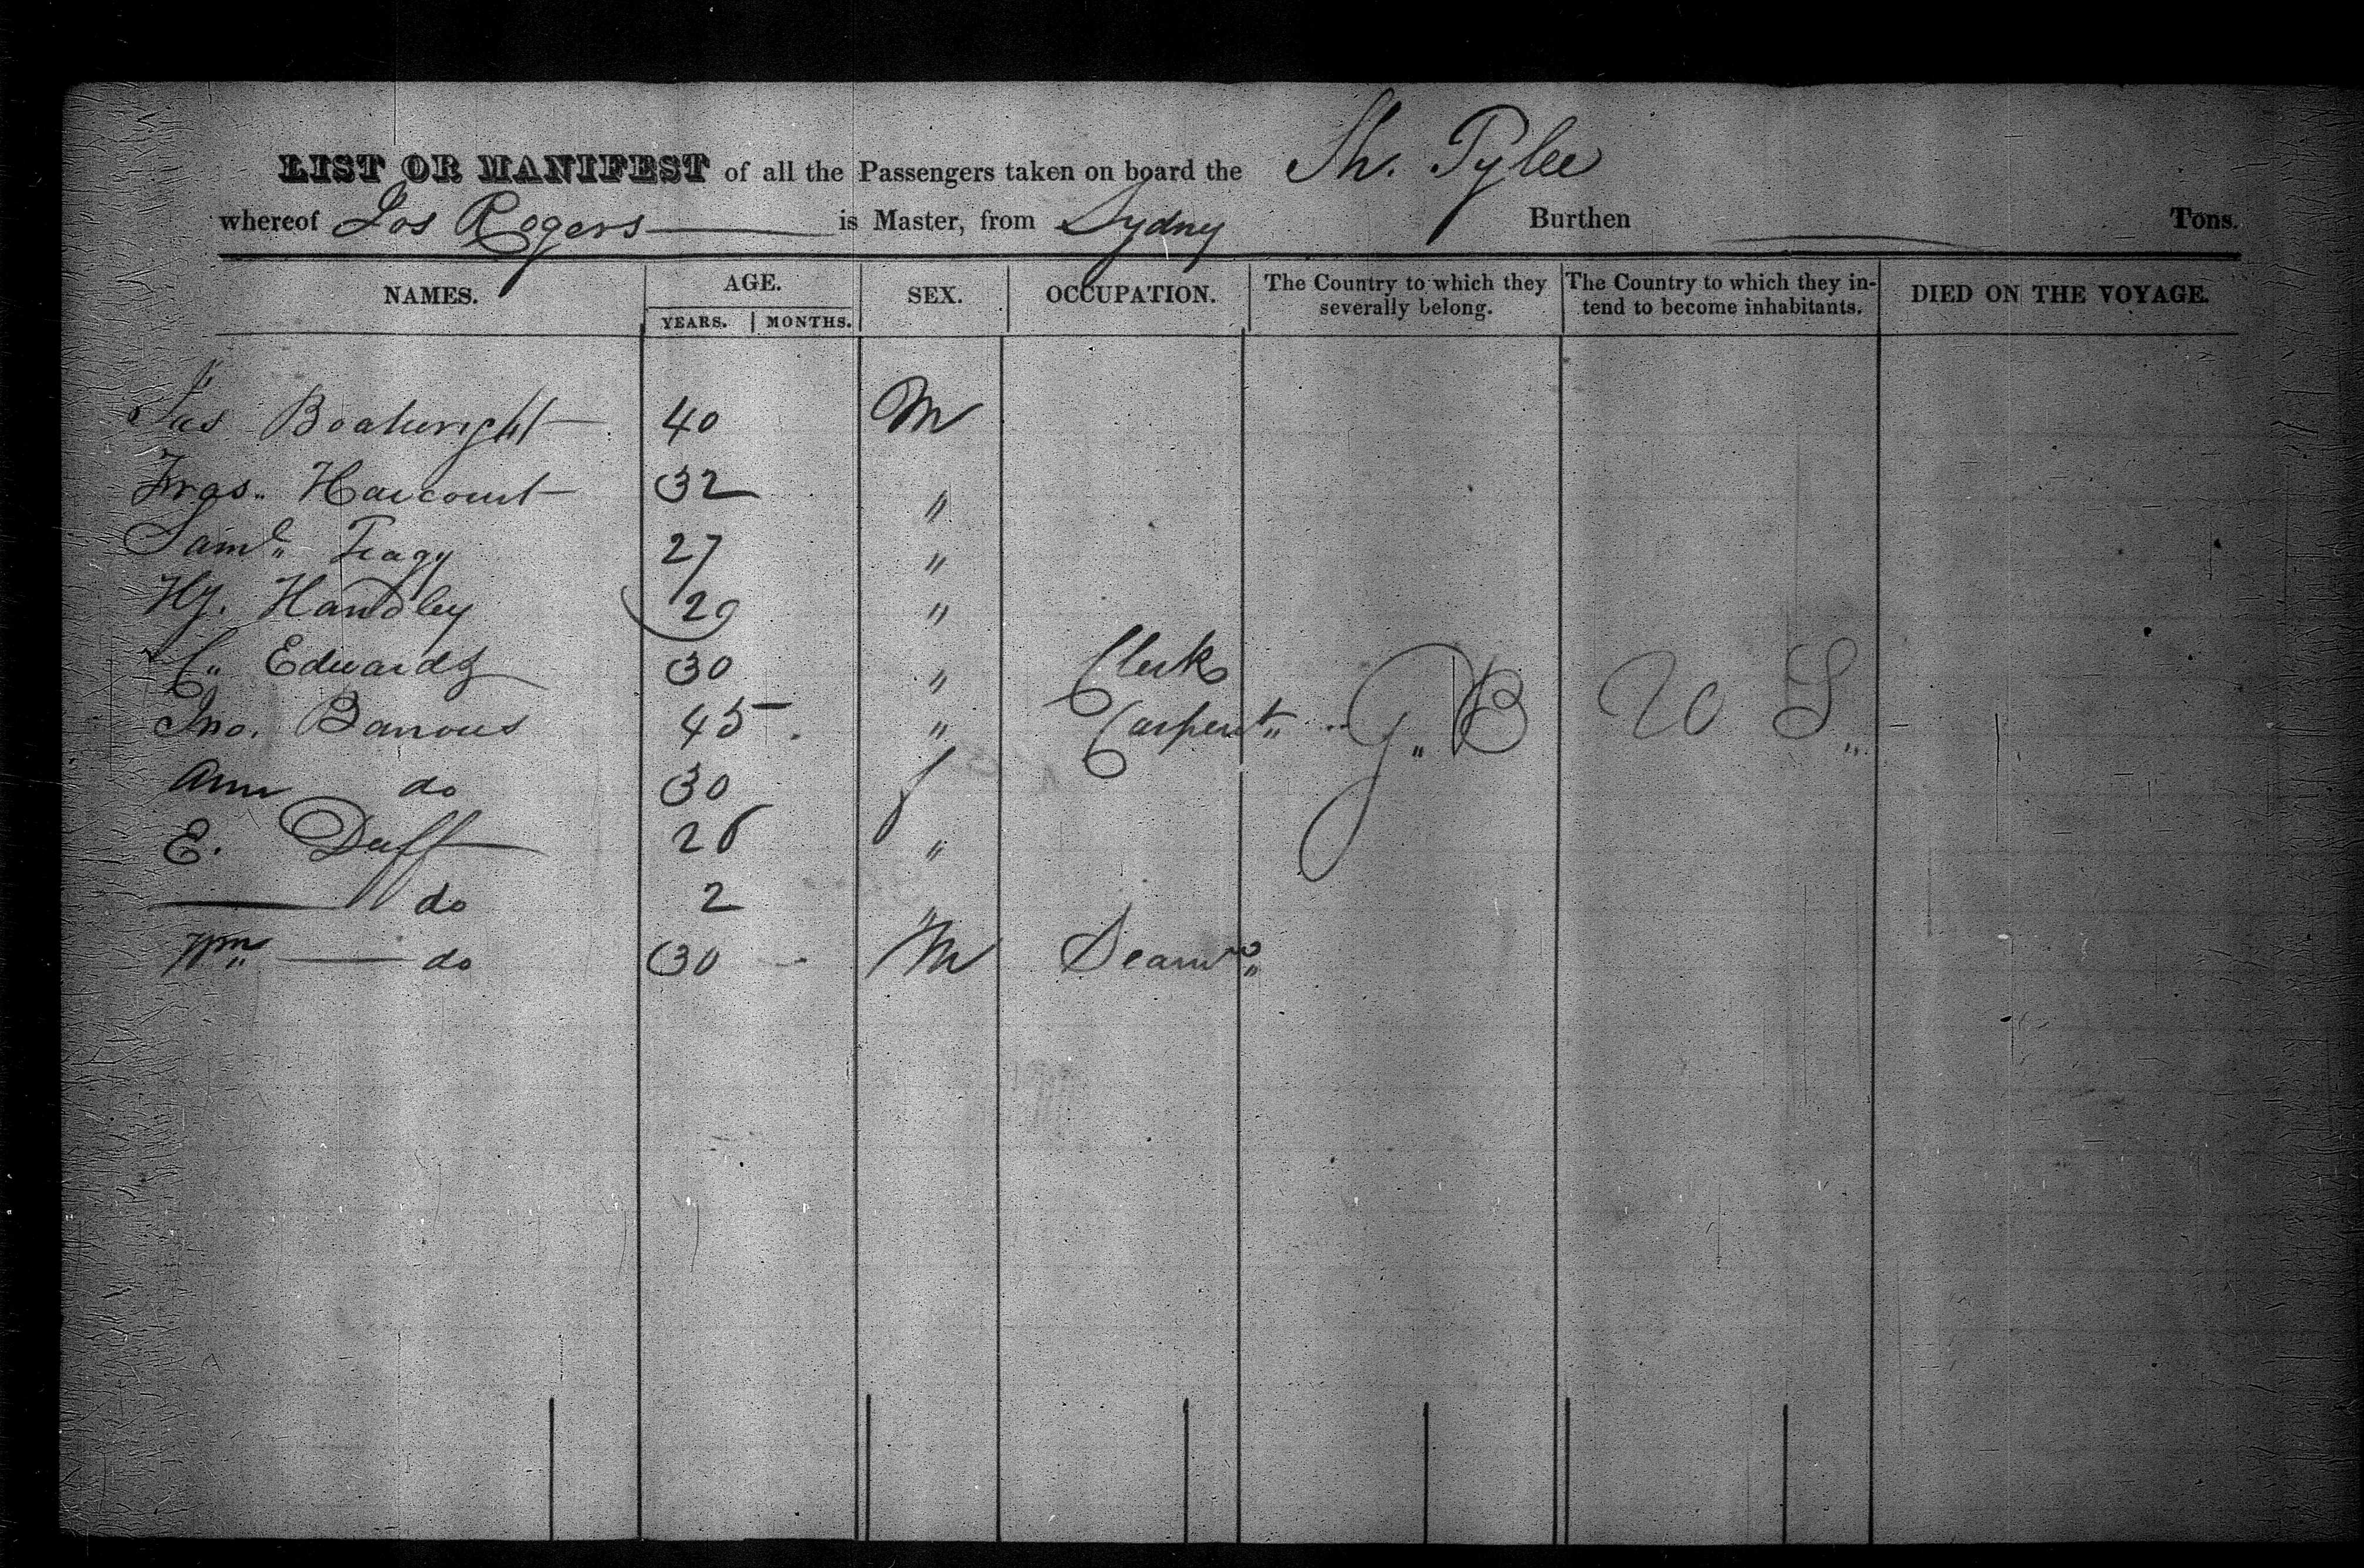 LIST OR MANIFEST of all the Passengers taken on board the Sh. Tylee
whereof Jos Rogers is Master, from Sydney Burthen Tons.
NAMES. AGE. SEX. OCCUPATION. The Country to which they severally belong. The Country to which they intend to become inhabitants. DIED ON THE VOYAGE.
YEARS. MONTHS.
Jas Boatwright 40 M
Fras. Harcourt 32 "
Saml. 27 "
Hy. Handley 20 "
C. Edwards 30 " Clerk
Jno. Barrows 45 " Carpent. G. B U S
Ann do 30 f
E. Duff 26 "
do 2 "
Wm do 30 M Seamn